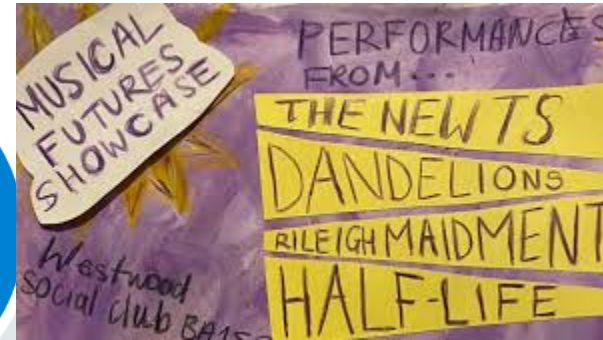 MUSICAL
FUTURES
SHOWCASE
PERFORMANCES
FROM...
THE NEWTS
DANDELIONS
RILEIGH MAIDMENT
HALF-LIFE
Westwood
social club